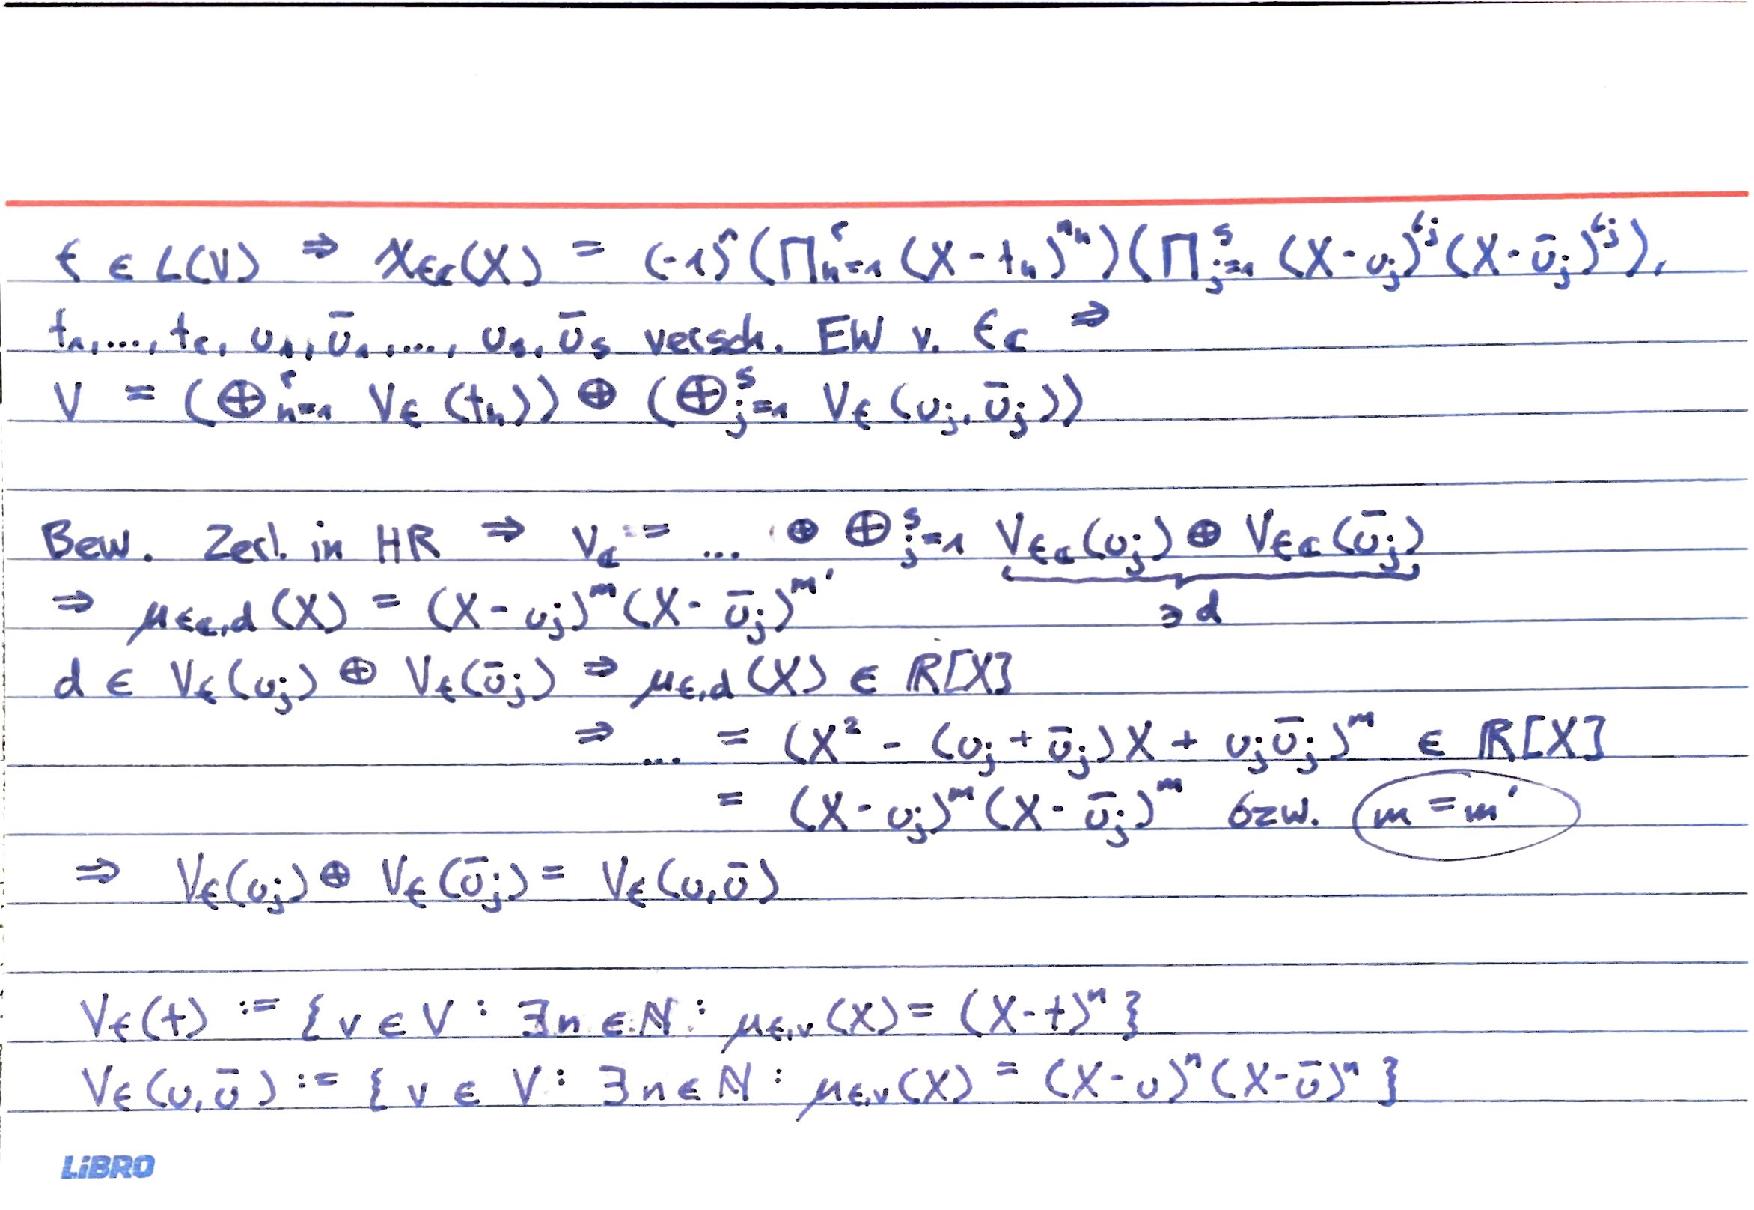 f ∈ L(V) ⇒ χ_{f_ℂ}(X) = (-1)^n (∏_{k=1}^r (X - t_k)^{n_k}) (∏_{j=1}^s (X - υ_j)^{l_j} (X - ῡ_j)^{l_j}),
t_1, ..., t_r, υ_1, ῡ_1, ..., υ_s, ῡ_s versch. EW v. f_ℂ ⇒
V = (⊕_{k=1}^r V_f(t_k)) ⊕ (⊕_{j=1}^s V_f(υ_j, ῡ_j))
Bew. Zerl. in HR ⇒ V_ℂ = ... ⊕ ⊕_{j=1}^s V_{f_ℂ}(υ_j) ⊕ V_{f_ℂ}(ῡ_j)
∋ d
⇒ μ_{f_ℂ,d}(X) = (X - υ_j)^m (X - ῡ_j)^{m'}
d ∈ V_f(υ_j) ⊕ V_f(ῡ_j) ⇒ μ_{f,d}(X) ∈ ℝ[X]
⇒ ... = (X² - (υ_j + ῡ_j)X + υ_jῡ_j)^m ∈ ℝ[X]
= (X - υ_j)^m (X - ῡ_j)^m bzw. m = m'
⇒ V_f(υ_j) ⊕ V_f(ῡ_j) = V_f(υ, ῡ)
V_f(t) := {v ∈ V : ∃n ∈ ℕ : μ_{f,v}(X) = (X - t)^n}
V_f(υ, ῡ) := {v ∈ V : ∃n ∈ ℕ : μ_{f,v}(X) = (X - υ)^n (X - ῡ)^n}
LiBRO